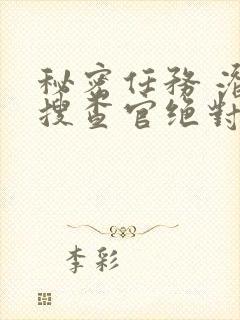 秘蜜任務 潛
搜查官绝對
李彩